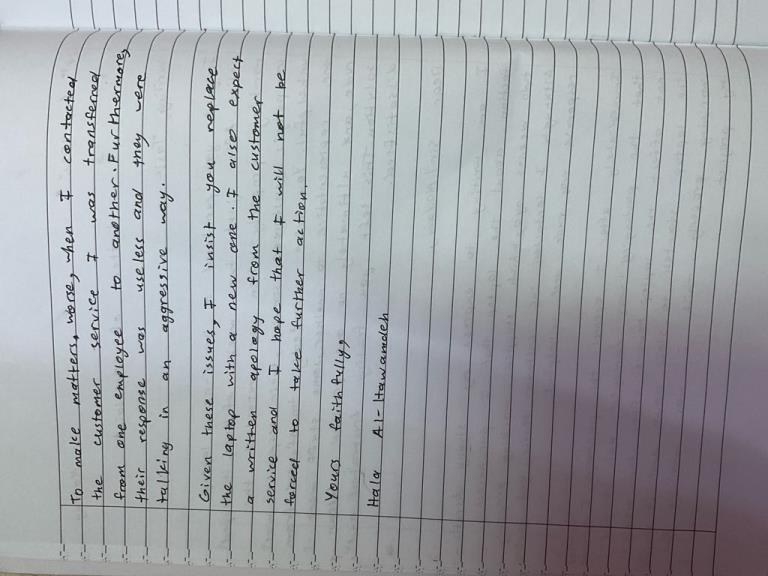 To make matters, worse, when I contacted
the customer service I was transferred
from one employee to another. Furthermore,
their response was useless and they were
talking in an aggressive way.
Given these issues, I insist you replace
the laptop with a new one. I also expect
a written apology from the customer
service and I hope that I will not be
forced to take further action.
Yours faithfully,
Hala Al-Hawamdeh